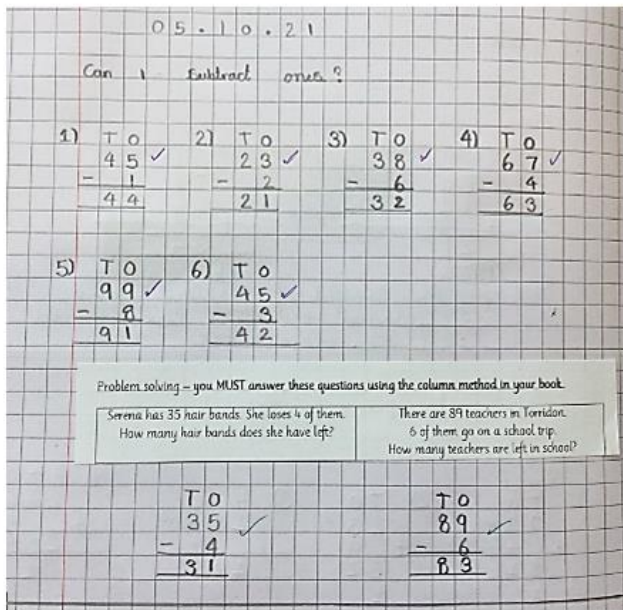 05.10.21
Can I subtract ones?
1) T O 2) T O 3) T O 4) T O
45 ✓ 23 ✓ 38 ✓ 67 ✓
- 1 - 2 - 6 - 4
44 21 32 63
5) T O 6) T O
99 ✓ 45 ✓
- 8 - 3
91 42
Problem solving – you MUST answer these questions using the column method in your book.
Serena has 35 hair bands. She loses 4 of them.
How many hair bands does she have left?
There are 89 teachers in Torridon.
6 of them go on a school trip.
How many teachers are left in school?
T O T O
35 ✓ 89 ✓
- 4 - 6
31 83